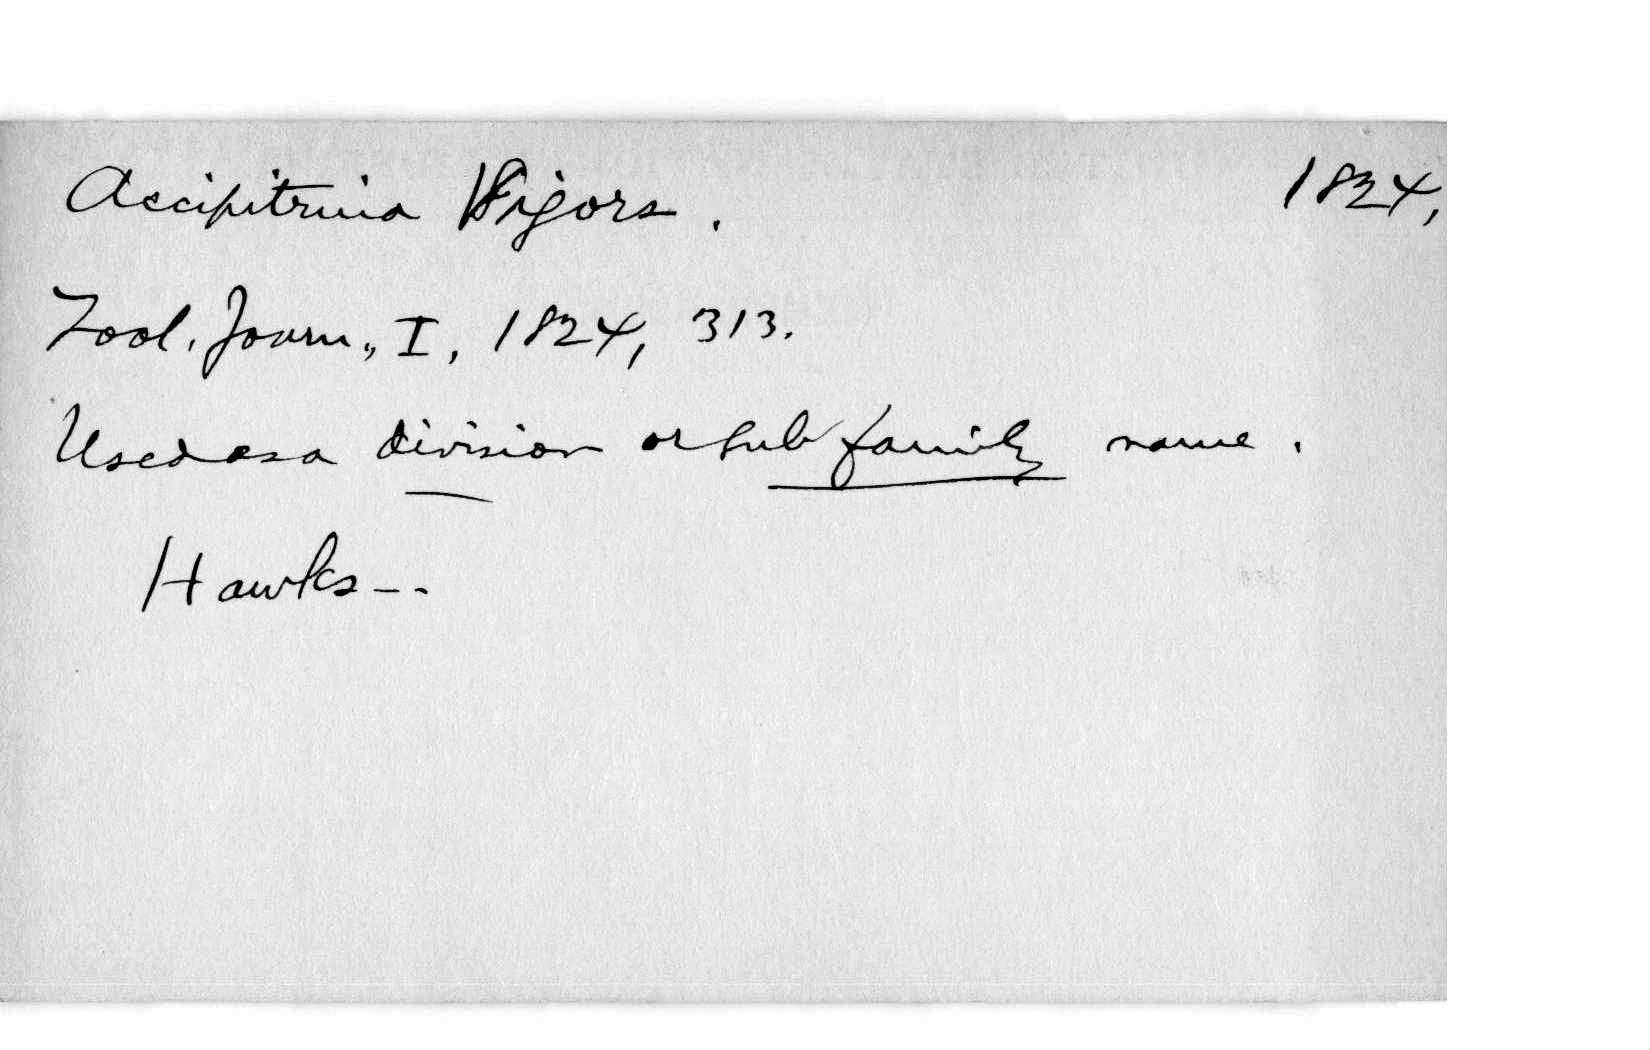 Accipitrina Vigors. 1824,
Zool. Journ., I, 1824, 313.
Used as a division or subfamily name.
Hawks--.